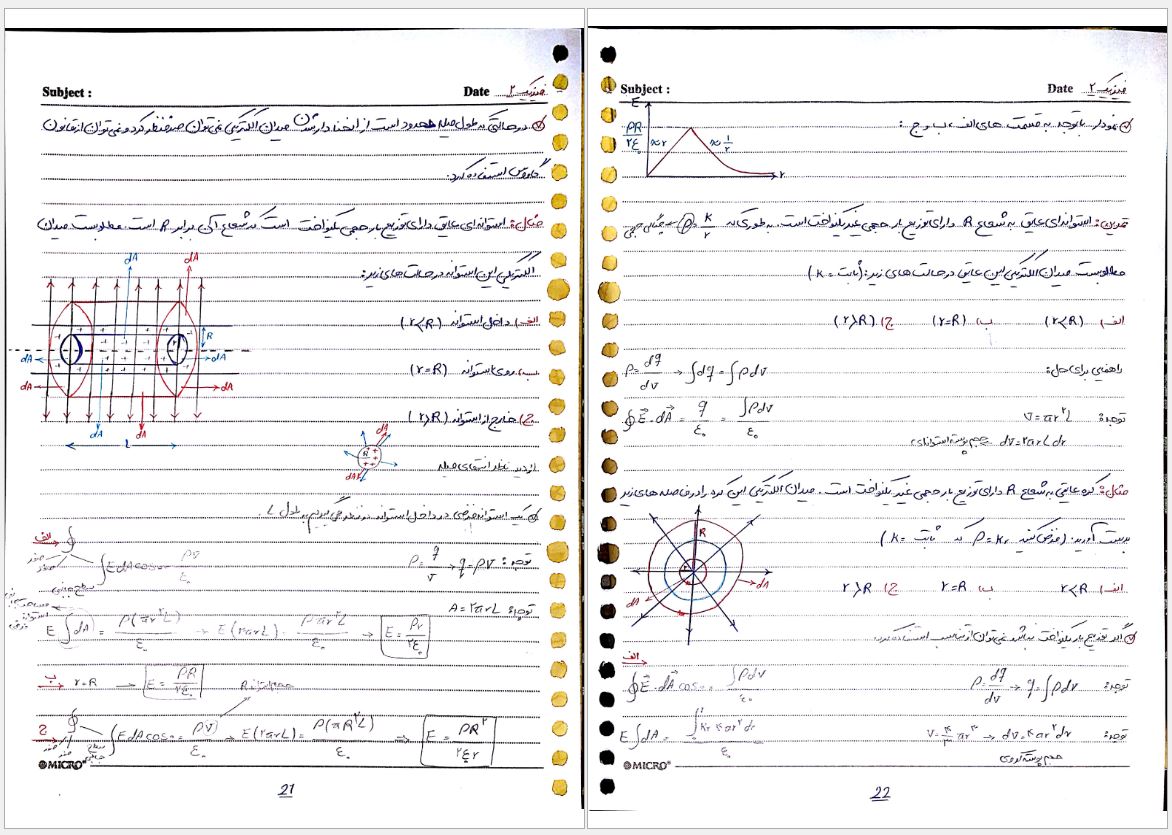 Subject :
Date فیزیک ۲
در حالتی که طول میله محدود است از انحنا دار شدن میدان الکتریکی نمی‌توان صرفنظر کرد و نمی‌توان از قانون
گاوس استفاده کرد.
مثال: استوانه‌ای عایق دارای توزیع بار حجمی یکنواخت است که شعاع آن برابر R است مطلوبست میدان
الکتریکی این استوانه در حالت های زیر:
الف) داخل استوانه (r<R)
ب) روی استوانه (r=R)
ج) خارج از استوانه (r>R)
dA
dA
R
dA
dA
dA
dA
dA
dA
L
dA
R
dA
از دید نظر انتهای میله
یک استوانه فرضی در داخل استوانه در نظر می گیریم به طول L
الف
توجه: ρ = q/V → q = ρV
∮ ∫EdA cos = ρV/ε₀
صفر
صفر
سطح جانبی
توجه: A = ۲πrL
E∫dA = ρ(πr²L)/ε₀ → E(۲πrL) = ρπr²L/ε₀ → E = ρr/۲ε₀
ب r=R → E = ρR/۲ε₀
ج ∮ ∫EdA cos = ρV/ε₀ → E(۲πrL) = ρ(πR²L)/ε₀ → E = ρR²/۲ε₀r
صفر
سطح جانبی
MICRO
21
Subject :
Date فیزیک ۲
نمودار با توجه به قسمت های الف، ب و ج :
E
ρR/۲ε₀
∝ r
∝ 1/r
r
تمرین: استوانه‌ای عایق به شعاع R دارای توزیع بار حجمی غیر یکنواخت است. به طوری که ρ = k/r چگالی حجمی
مطلوبست میدان الکتریکی این عایق در حالت های زیر: (ثابت = k)
الف) (r<R) ب) (r=R) ج) (r>R)
راهنمایی برای حل: ρ = dq/dv → ∫dq = ∫ρdv
∮E.dA = q/ε₀ = ∫ρdv/ε₀
توجه: V = πr²L
dv = ۲πrLdr حجم پوسته استوانه‌ای
مثال: کره عایقی به شعاع R دارای توزیع بار حجمی غیر یکنواخت است. میدان الکتریکی این کره را در فاصله های زیر
بدست آورید: (فرض کنید ρ = kr که ثابت = k)
الف) r<R ب) r=R ج) r>R
R
dA
dA
اگر توزیع بار یکنواخت نباشد نمی‌توان از تناسب استفاده کرد.
الف
∮E.dA cos = ∫ρdv/ε₀
توجه: ρ = dq/dv → q = ∫ρdv
E∫dA = ∫kr ۴πr²dr/ε₀
توجه: V = ۴/۳ πr³ → dv = ۴πr²dr
حجم پوسته کروی
MICRO
22